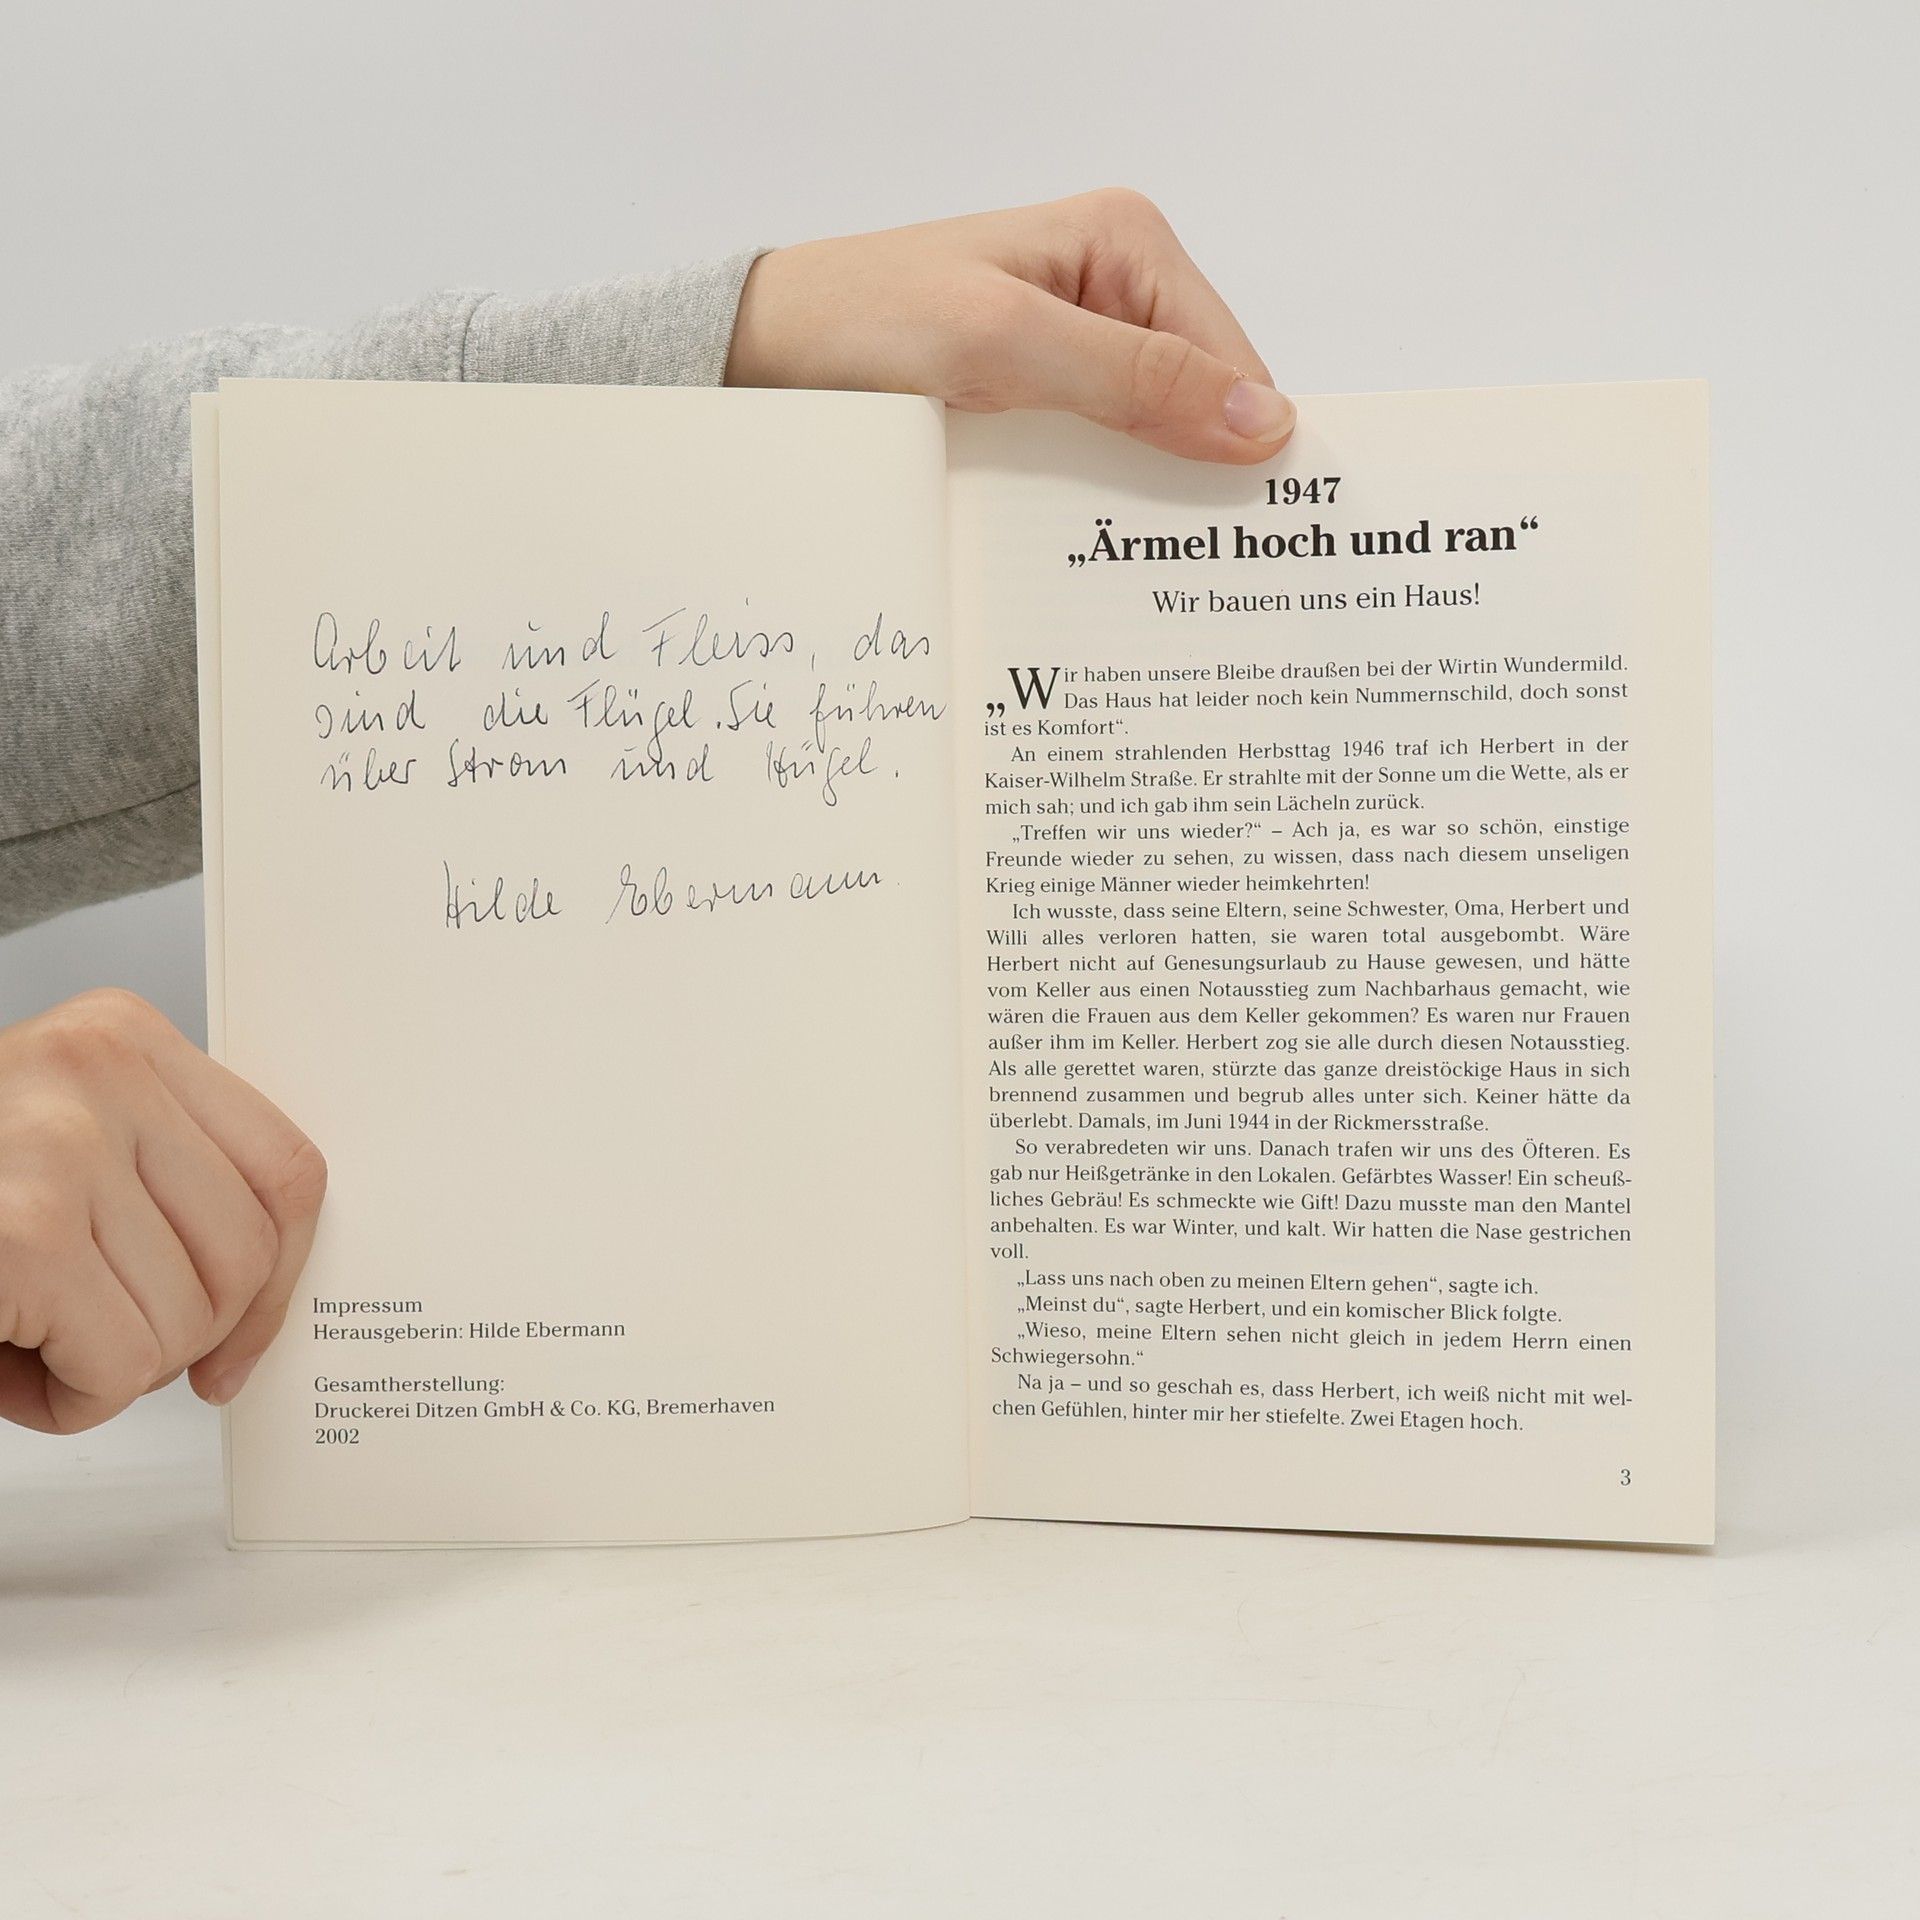 Arbeit und Fleiss, das
sind die Flügel. Sie führen
über Strom und Hügel.
Hilde Ebermann.
Impressum
Herausgeberin: Hilde Ebermann
Gesamtherstellung:
Druckerei Ditzen GmbH & Co. KG, Bremerhaven
2002
1947
„Ärmel hoch und ran“
Wir bauen uns ein Haus!
„Wir haben unsere Bleibe draußen bei der Wirtin Wundermild.
Das Haus hat leider noch kein Nummernschild, doch sonst
ist es Komfort“.
An einem strahlenden Herbsttag 1946 traf ich Herbert in der
Kaiser-Wilhelm Straße. Er strahlte mit der Sonne um die Wette, als er
mich sah; und ich gab ihm sein Lächeln zurück.
„Treffen wir uns wieder?“ – Ach ja, es war so schön, einstige
Freunde wieder zu sehen, zu wissen, dass nach diesem unseligen
Krieg einige Männer wieder heimkehrten!
Ich wusste, dass seine Eltern, seine Schwester, Oma, Herbert und
Willi alles verloren hatten, sie waren total ausgebombt. Wäre
Herbert nicht auf Genesungsurlaub zu Hause gewesen, und hätte
vom Keller aus einen Notausstieg zum Nachbarhaus gemacht, wie
wären die Frauen aus dem Keller gekommen? Es waren nur Frauen
außer ihm im Keller. Herbert zog sie alle durch diesen Notausstieg.
Als alle gerettet waren, stürzte das ganze dreistöckige Haus in sich
brennend zusammen und begrub alles unter sich. Keiner hätte da
überlebt. Damals, im Juni 1944 in der Rickmersstraße.
So verabredeten wir uns. Danach trafen wir uns des Öfteren. Es
gab nur Heißgetränke in den Lokalen. Gefärbtes Wasser! Ein scheuß-
liches Gebräu! Es schmeckte wie Gift! Dazu musste man den Mantel
anbehalten. Es war Winter, und kalt. Wir hatten die Nase gestrichen
voll.
„Lass uns nach oben zu meinen Eltern gehen“, sagte ich.
„Meinst du“, sagte Herbert, und ein komischer Blick folgte.
„Wieso, meine Eltern sehen nicht gleich in jedem Herrn einen
Schwiegersohn.“
Na ja – und so geschah es, dass Herbert, ich weiß nicht mit wel-
chen Gefühlen, hinter mir her stiefelte. Zwei Etagen hoch.
3